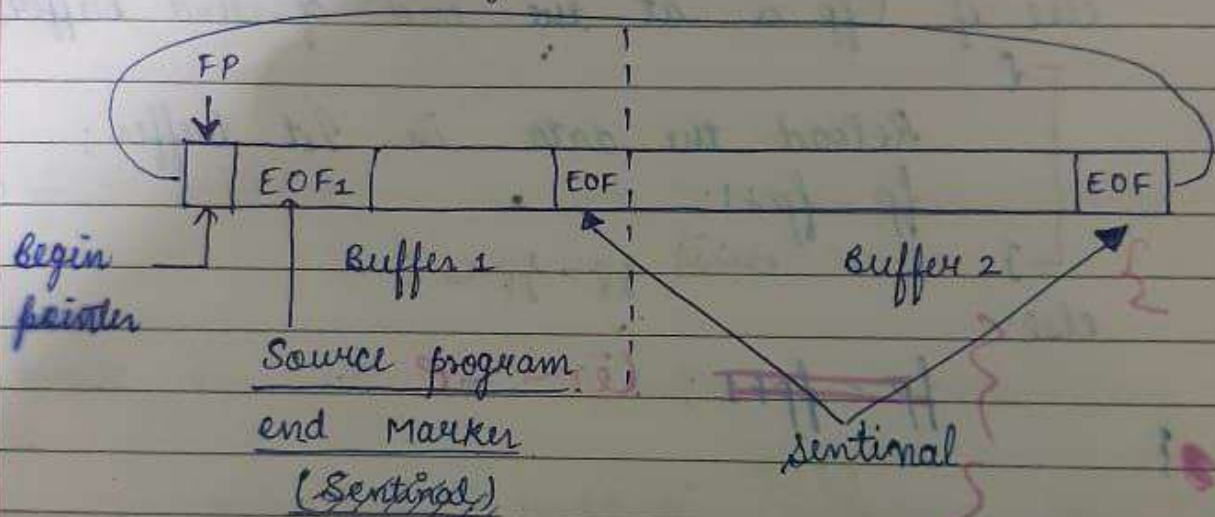 FP
EOF1
EOF
EOF
Begin
pointer
Buffer 1
Buffer 2
Source program
end Marker
(Sentinal)
sentinal